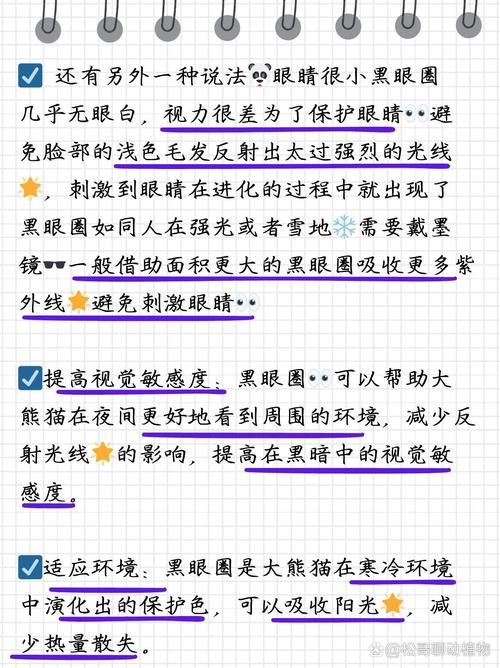 还有另外一种说法🐼眼睛很小黑眼圈
几乎无眼白，视力很差为了保护眼睛👀避
免脸部的浅色毛发反射出太过强烈的光线
🌟，刺激到眼睛在进化的过程中就出现了
黑眼圈如同人在强光或者雪地❄️需要戴墨
镜🕶️一般借助面积更大的黑眼圈吸收更多紫
外线🌟避免刺激眼睛👀
提高视觉敏感度：黑眼圈👀可以帮助大
熊猫在夜间更好地看到周围的环境，减少反
射光线🌟的影响，提高在黑暗中的视觉敏
感度。
适应环境：黑眼圈是大熊猫在寒冷环境
中演化出的保护色，可以吸收阳光🌟，减
少热量散失。
松哥聊动植物